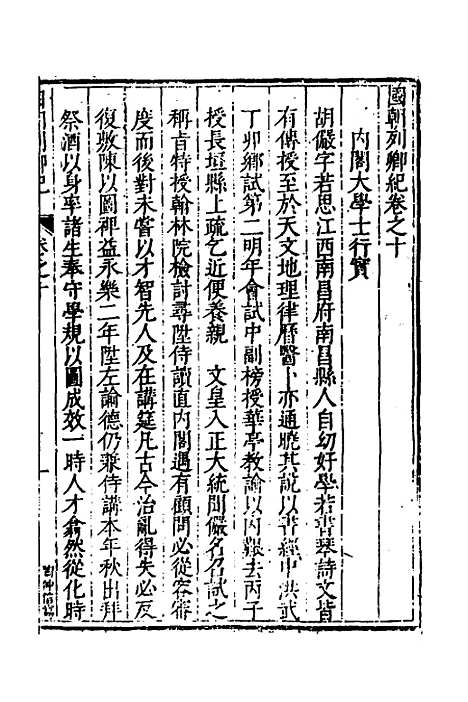 國朝列卿紀卷之十
內閣大學士行實
胡儼字若思江西南昌府南昌縣人自幼好學若書琴詩文皆
有傳授至於天文地理律曆醫卜亦通曉其說以書經中洪武
丁卯鄉試第二明年會試中副榜授華亭教諭以內艱去丙子
授長垣縣上疏乞近便養親 文皇入正大統聞儼名召試之
稱旨特授翰林院檢討尋陞侍讀直內閣遇有顧問必從容審
度而後對未嘗以才智先人及在講筵凡古今治亂得失必反
復敷陳以圖裨益永樂二年陞左諭德仍兼侍講本年秋出拜
祭酒以身率諸生奉守學規以圖成效一時人才翕然從化時
卷之十
一